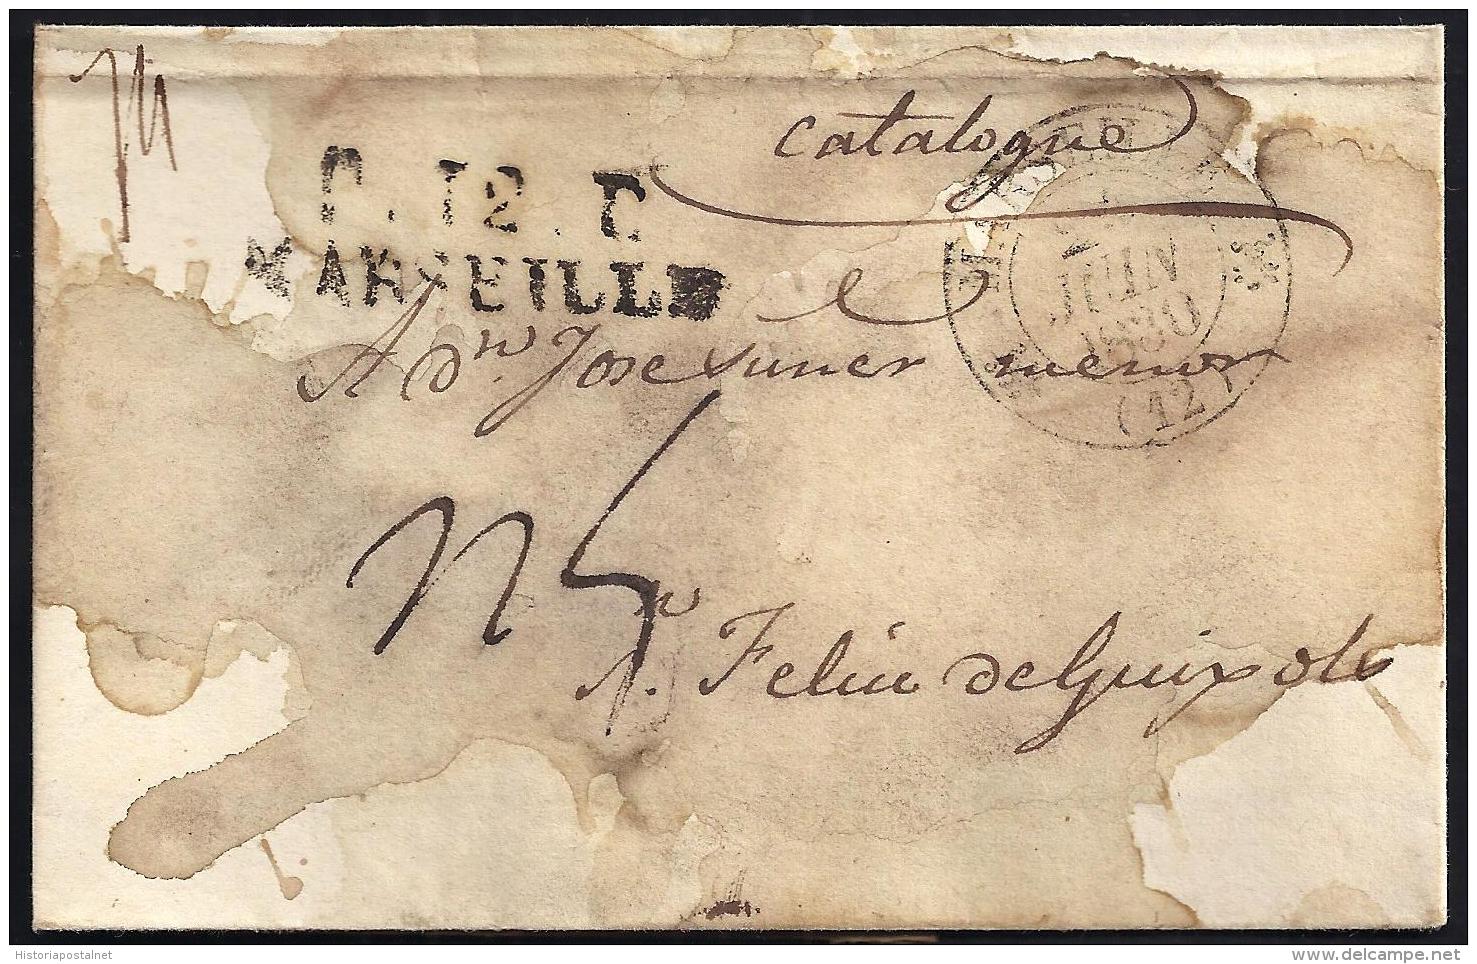 catalogue
P. 12. P
MARSEILLE
JUIN
1830
(12)
A Dn. Jose suner menor
n 5
Sn. Feliu de Guixols
Historiapostalnet
delcampe.net